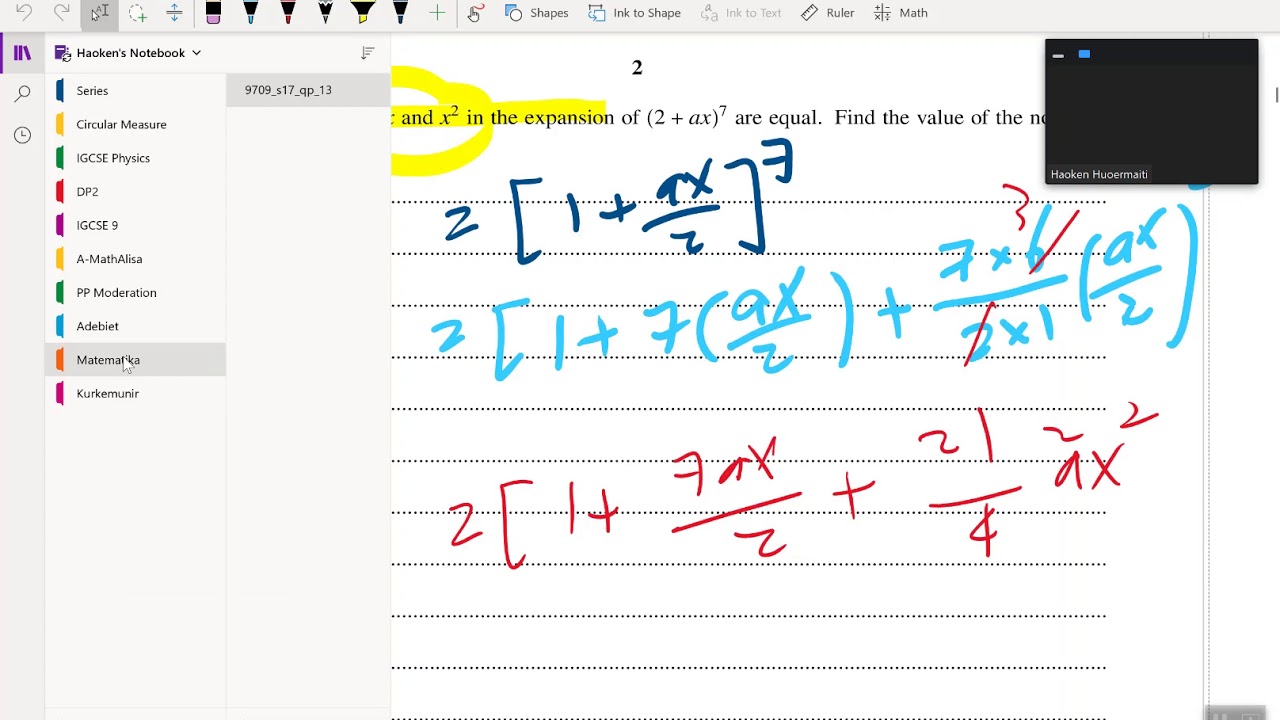 Shapes Ink to Shape Ink to Text Ruler Math
Haoken's Notebook
Series
Circular Measure
IGCSE Physics
DP2
IGCSE 9
A-MathAlisa
PP Moderation
Adebiet
Matematika
Kurkemunir
9709_s17_qp_13
2
and x² in the expansion of (2 + ax)⁷ are equal. Find the value of the
Haoken Huoermaiti
2 [ 1 + ax/2 ]⁷
2 [ 1 + 7 (ax/2) + 7 x 6/2 x 1 (ax/2)
3
2 [ 1 + 7ax/2 + 21/4 a²x²